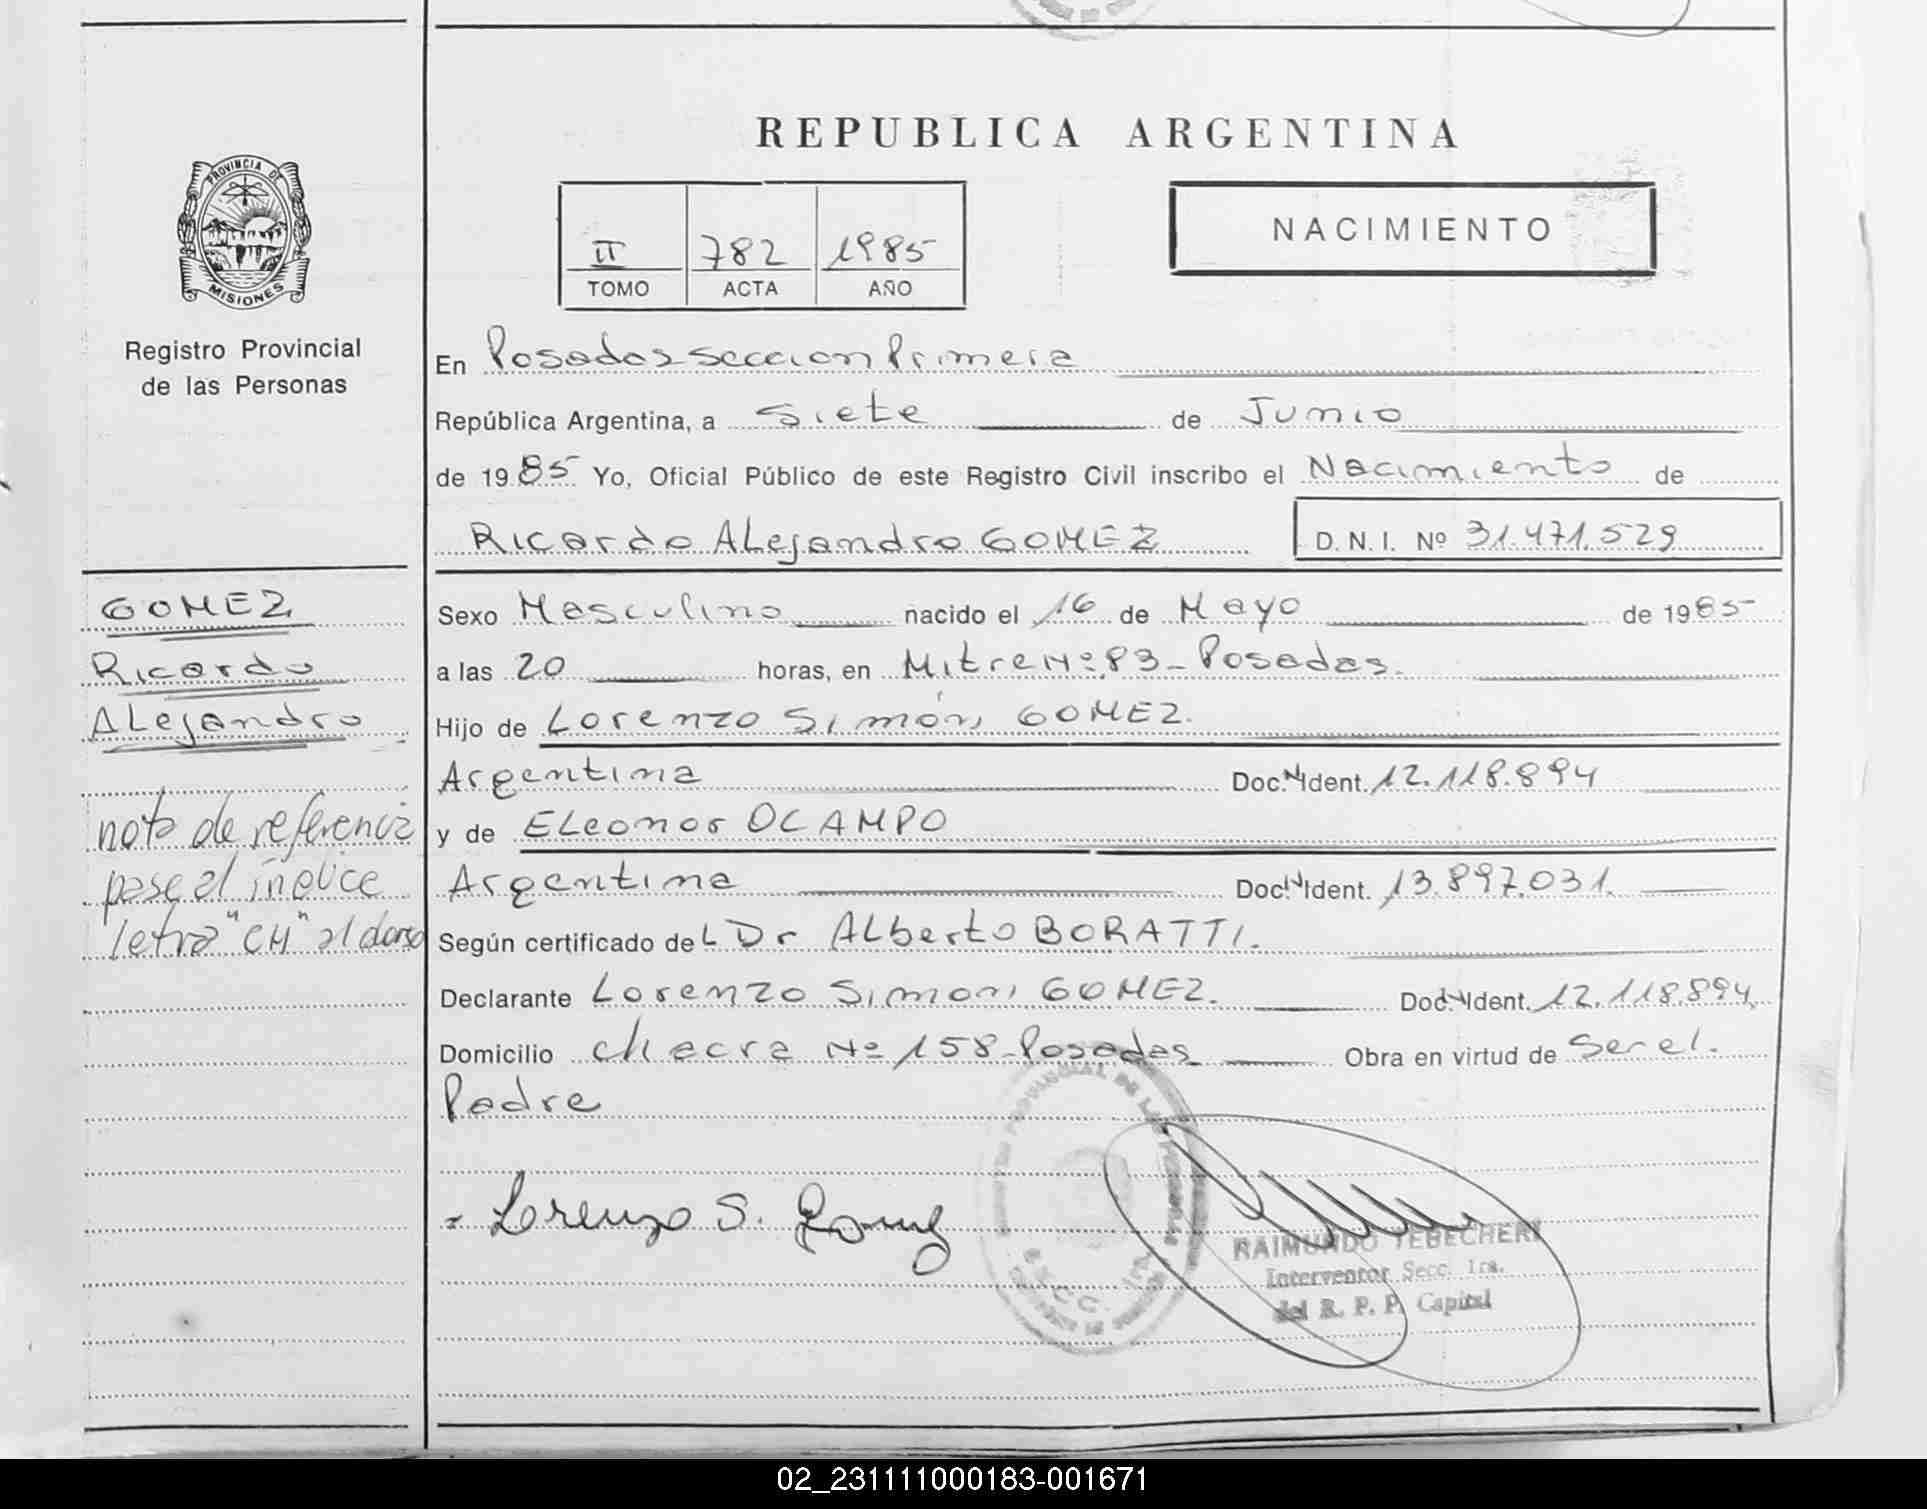 REPUBLICA ARGENTINA
PROVINCIA DE
MISIONES
Registro Provincial
de las Personas
II 782 1985
TOMO ACTA AÑO
NACIMIENTO
En Posadas Seccion Primera
República Argentina, a Siete de Junio
de 1985 Yo, Oficial Público de este Registro Civil inscribo el Nacimiento de
Ricardo Alejandro GOMEZ D. N. I. Nº 31.471.529
GOMEZ
Ricardo
Alejandro
nota de referencia
pase al índice
letra "CH" al dorso
Sexo Masculino nacido el 16 de Mayo de 1985
a las 20 horas, en Mitre Nº 83 - Posadas.
Hijo de Lorenzo Simón GOMEZ.
Argentina Doc. N Ident. 12.118.894
y de ELeonor OCAMPO
Argentina Doc. N Ident. 13.897.031.
Según certificado del Dr ALberto BORATTI.
Declarante Lorenzo Simon GOMEZ. Doc. N Ident. 12.118.894
Domicilio chacra Nº 158 - Posadas Obra en virtud de Ser el.
Padre
Lorenzo S. Gomez
RAIMUNDO TEBECHERI
Interventor Secc. 1ra.
del R. P. P. Capital
02_231111000183-001671